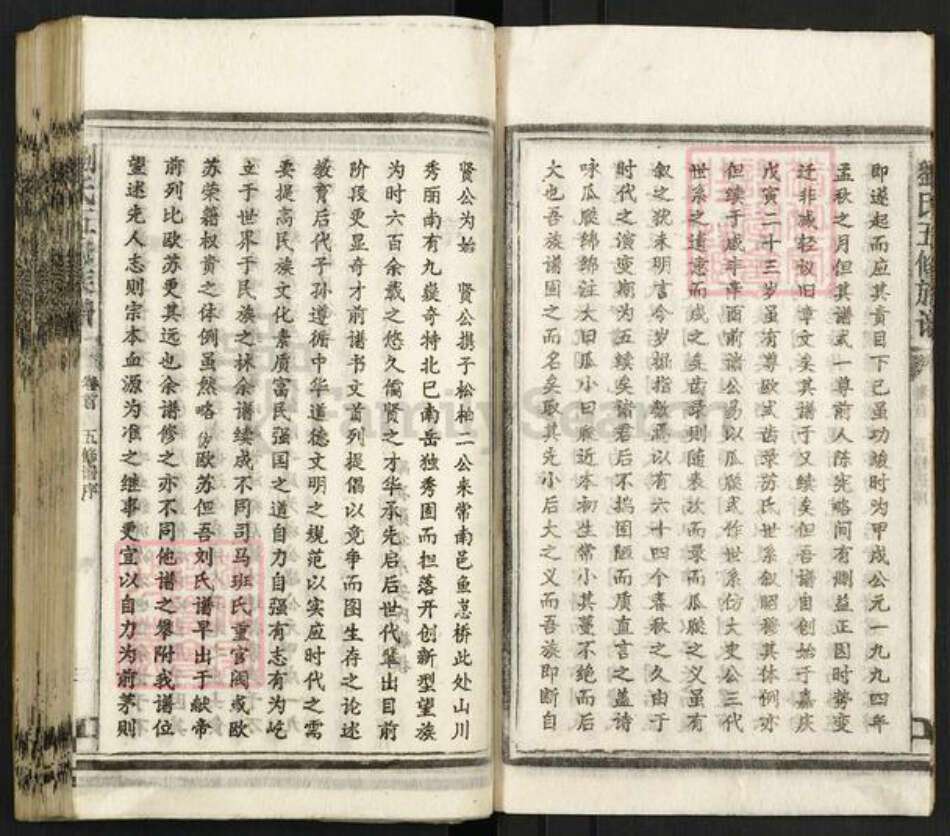 劉氏五修族譜
即遂起而应其责目下已虽功竣时为甲戌公元一九九四年
孟秋之月但其谱式一尊前人陈宪略间有删益正因时势变
迁非减轻议旧章文矣其谱于又续矣但吾谱自创始于嘉庆
戊寅二十三岁虽有尊欧式齿录苏氏世系叙昭穆其体例亦
但续于咸丰辛酉前谱公易以瓜瓞式作世系仿大史公三代
世系之遗意而成之矣齿录则随表放而录而瓜瓞之义虽有
叙之犹未明言今岁掘指数源以有六十四个春秋之久由于
时代之演变期为五续矣谕君后不揣固陋而质直言之盖诗
咏瓜瓞绵绵注大曰瓜小曰瓞近本初生常小其蔓不绝而后
大也吾族谱图之而名矣取其先小后大之义而吾族即断自
贤公为始 贤公携子松柏二公来常南邑鱼崽桥此处山川
秀丽南有九嶷奇特北巳南岳独秀因而担落开创新型望族
为时六百余载之悠久儒贤之才华承先启后世代辈出目前
阶段更显奇才前谱书文首列提倡以竟争而图生存之论述
教育后代子孙遵循中华道德文明之规范以实应时代之需
要提高民族文化素质富民强国之道自力自强有志有为屹
立于世界于民族之林余谱续成不同司马班氏重官阀或欧
苏荣籍权贵之体例虽然略仿欧苏但吾刘氏谱早出于献帝
前列比欧苏更其远也余谱修之亦不同他谱之攀附我谱位
望述先人志则宗本血源为准之继事更宜以自力为前茅则
卷首
五修谱序
FamilySearch